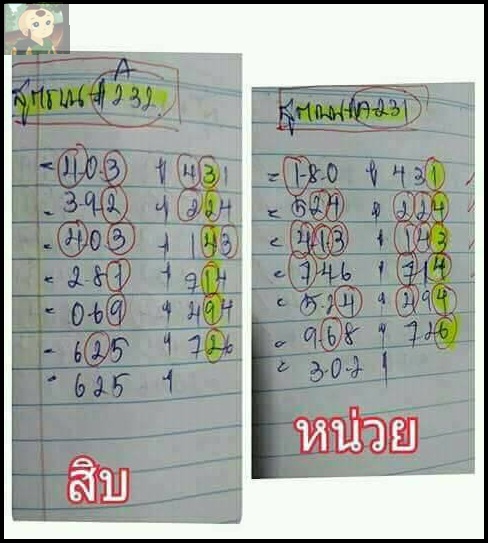 A
สูตรบน A232
= 403 | 431
= 392 | 224
= 403 | 143
= 281 | 714
= 069 | 494
= 625 | 726
= 625 |
สิบ
สูตรบน A231
= 1-8-0 | 431
= 524 | 224
= 413 | 143
= 746 | 714
= 524 | 294
= 968 | 726
= 3-0-2 |
หน่วย